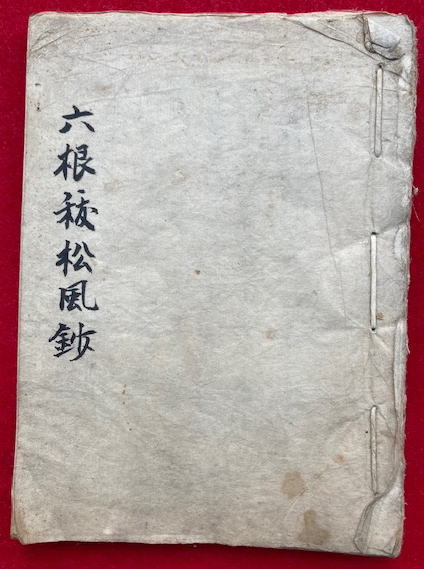 六根秡松風鈔